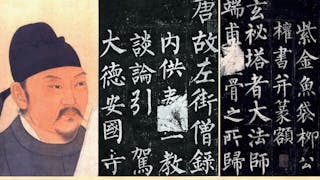 紫金魚袋柳公
權書并篆額
玄秘塔者大法師
端甫骨之所歸
唐故左街僧録
内供教
談論引駕
大德安國寺